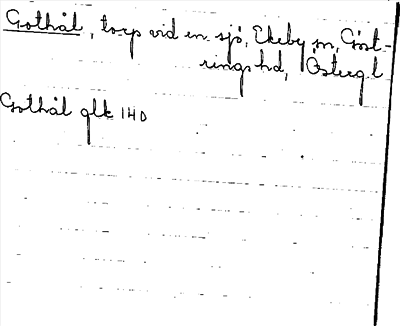 Gothål, torp vid en sjö, Ekeby sn, Göst-
rings hd, Östergl
Gothål glk 140